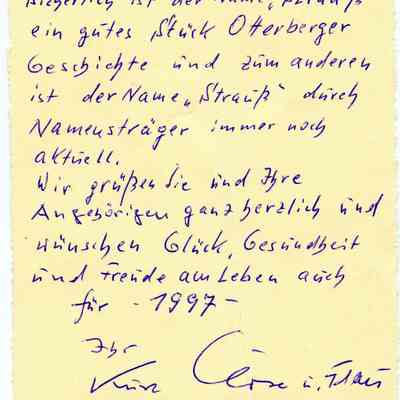 ist der Name „Strauß"
ein gutes Stück Otterberger
Geschichte und zum anderen
ist der Name „Strauß" durch
Namensträger immer noch
aktuell.
Wir grüßen Sie und Ihre
Angehörigen ganz herzlich und
wünschen Glück, Gesundheit
und Freude am Leben auch
für - 1997 -
Ihr
u. Frau